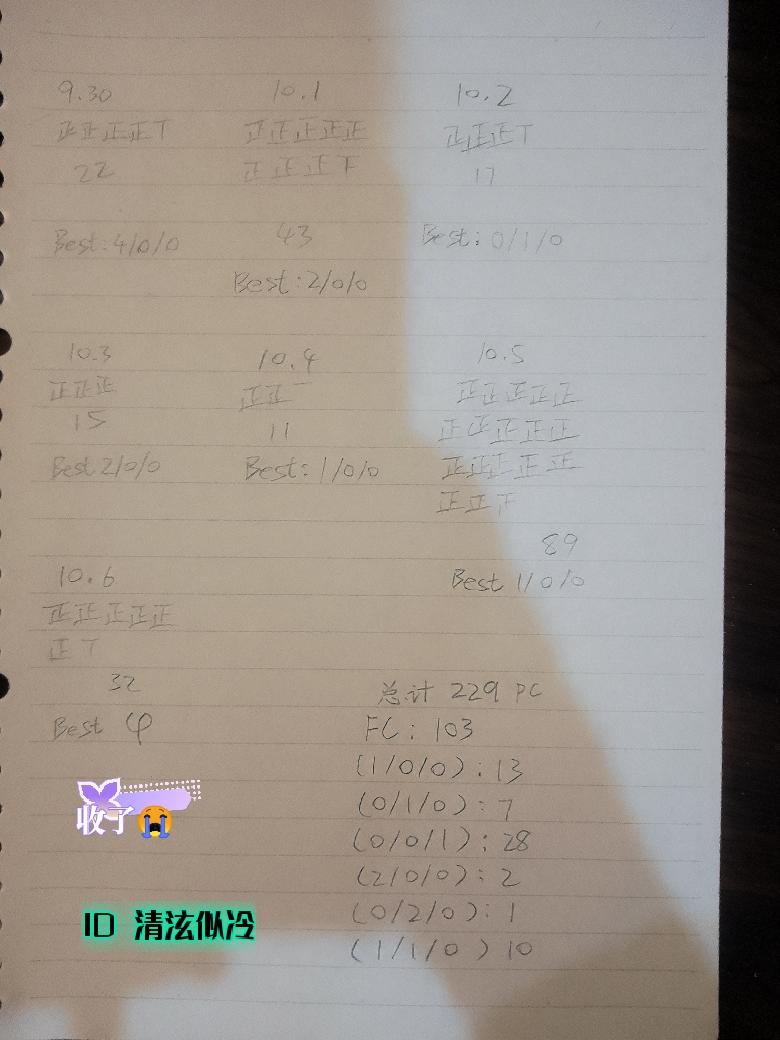 9.30
正正正正T
22
Best:4/0/0
10.1
正正正正正
正正正下
43
Best:2/0/0
10.2
正正正T
17
Best:0/1/0
10.3
正正正
15
Best 2/0/0
10.4
正正一
11
Best:1/0/0
10.5
正正正正正
正正正正正
正正正正正
正正
89
Best 1/0/0
10.6
正正正正正
正T
32
Best φ
总计 229 PC
FC:103
(1/0/0):13
(0/1/0):7
(0/0/1):28
(2/0/0):2
(0/2/0):1
(1/1/0) 10
收了😭
ID 清泫似冷